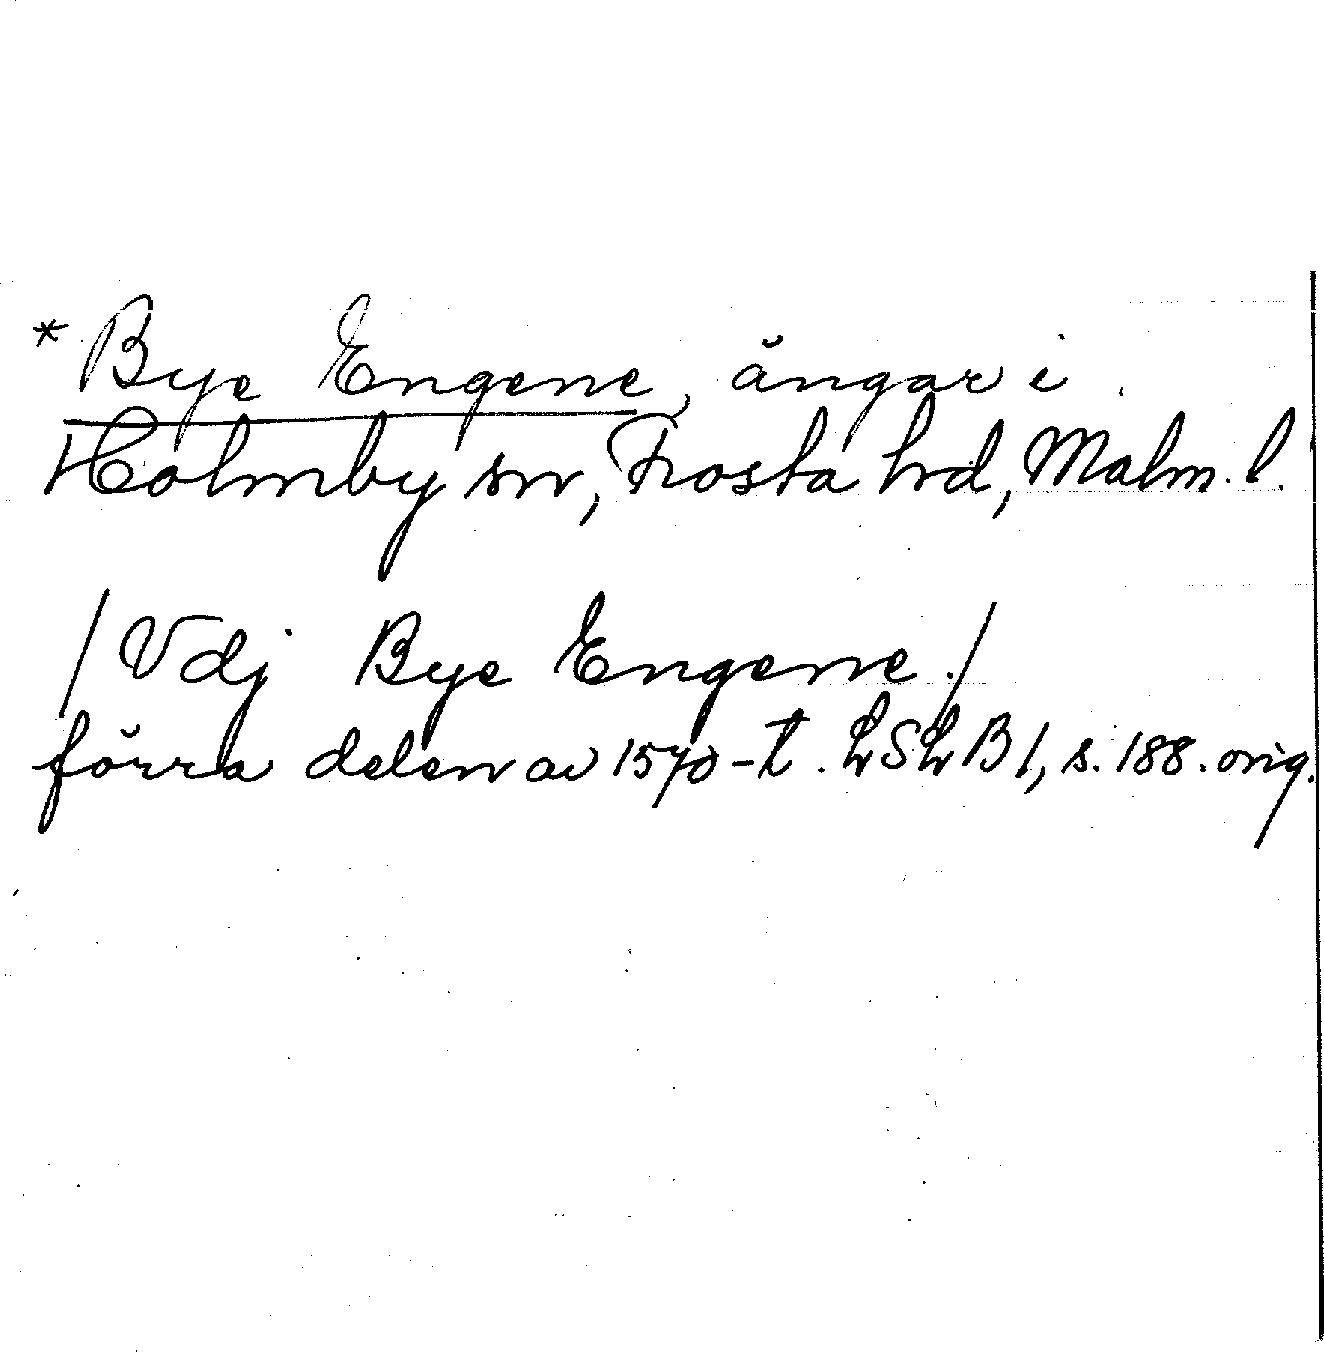 * Bye Engene, ängar i
Holmby sn, Frosta hd, Malm. l.
/ Vdj Bye Engene. /
förra delen av 1570-t. LSLB 1, s. 188. orig.